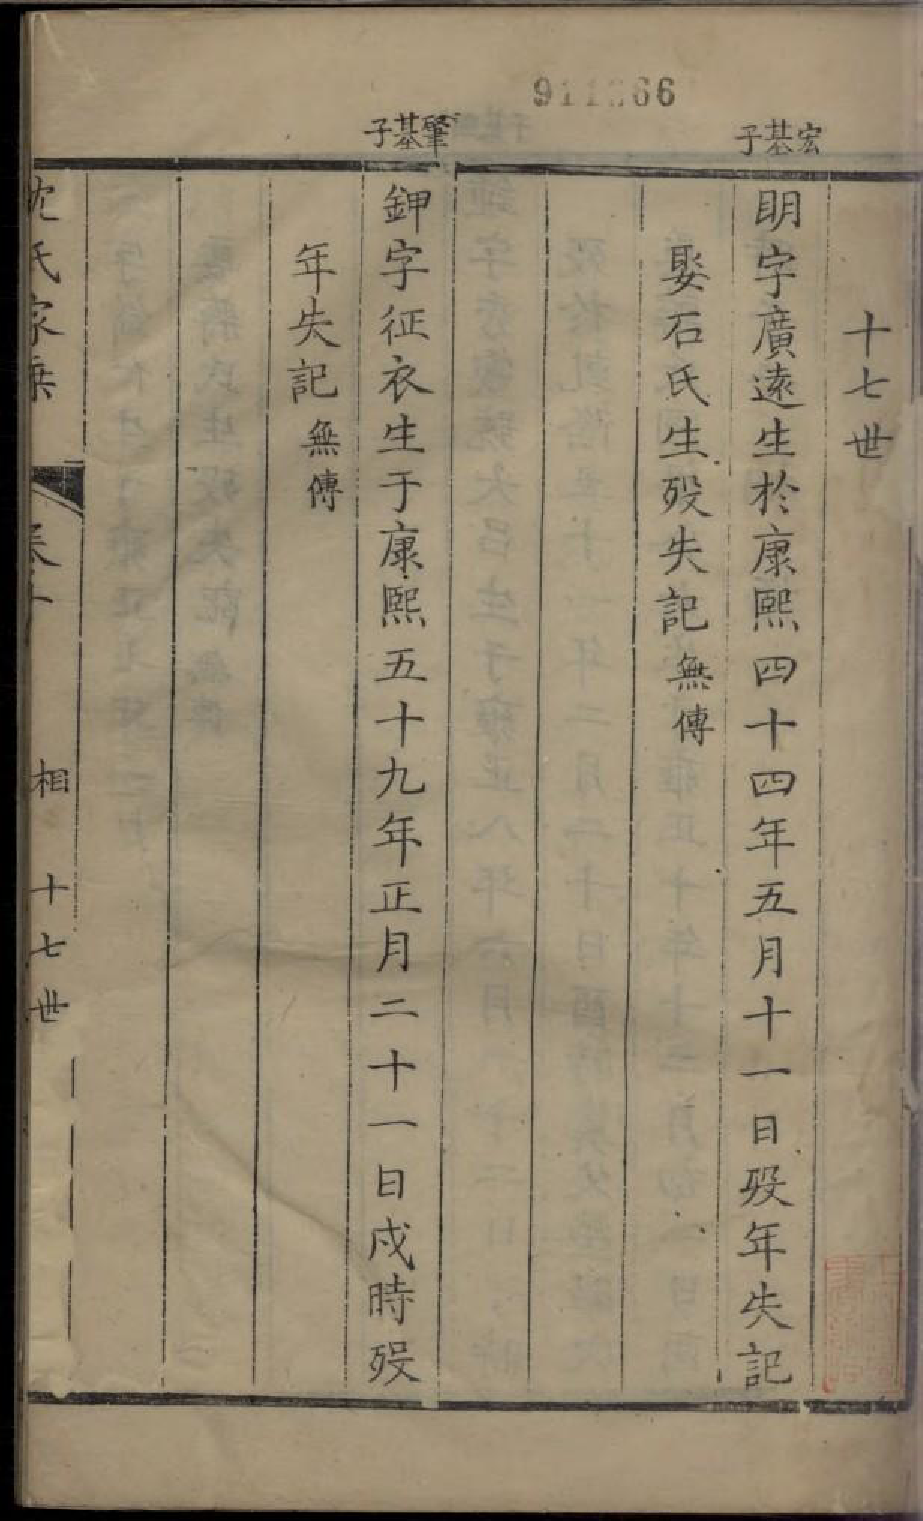 911366
十七世
宏基子
明字廣遠生於康熙四十四年五月十一日殁年失記
娶石氏生殁失記無傳
肇基子
鉀字征衣生于康熙五十九年正月二十一日戌時殁
年失記無傳
沈氏家乘
卷十
相
十七世